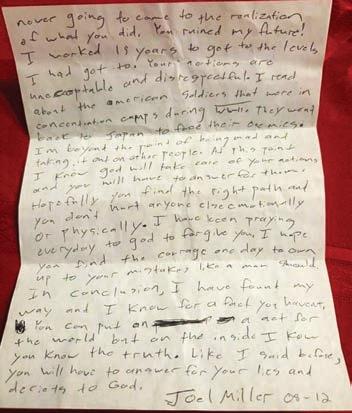 never going to come to the realization
of what you did. You ruined my future!
I worked 15 years to get to the levels
I had got to. Your actions are
unexceptable and disrespectful. I read
about the american soldiers that were in
concentration camps during WWII. They went
back to Japan to face their enemies.
I'm beyond the point of being mad and
taking it out on other people. At this point
I know god will take care of your actions
and you will have to answer for them.
Hopefully you find the right path and
you don't hurt anyone else emotionally
or physically. I have been praying
everyday to god to forgive you, I hope
you find the corrage one day to own
up to your mistakes like a man should.
In conclusion, I have found my
way and I know for a fact you havent.
You can put on a act for
the world but on the inside I know
you know the truth. Like I said before,
you will have to answer for your lies and
deciets to God.
Joel Miller 09-12